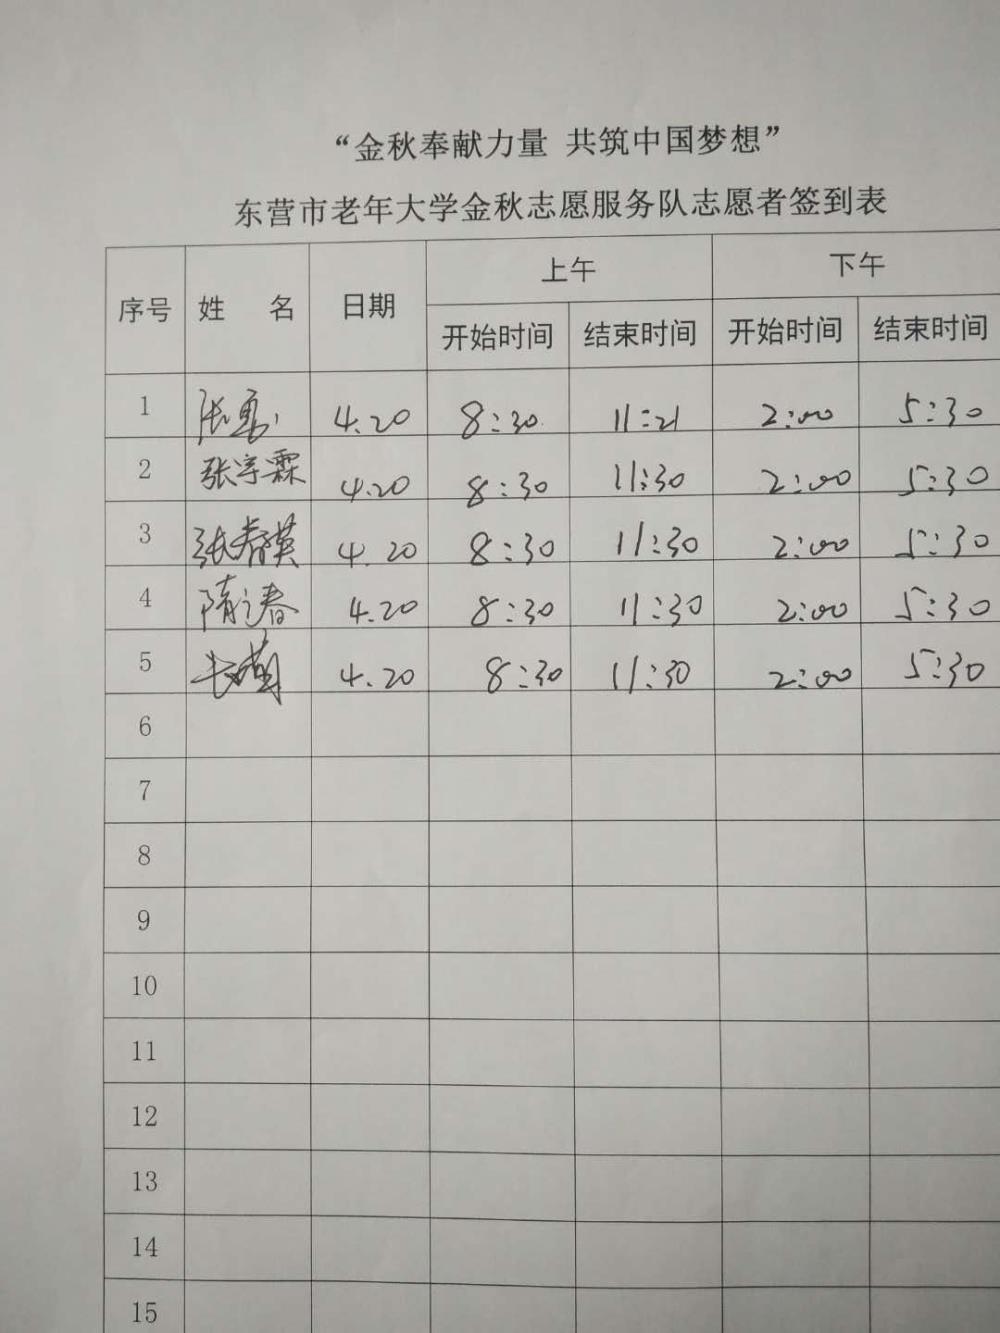 “金秋奉献力量 共筑中国梦想”
东营市老年大学金秋志愿服务队志愿者签到表
序号 姓 名 日期 上午 下午
开始时间 结束时间 开始时间 结束时间
1 张 4.20 8:30 11:21 2:00 5:30
2 张宇霖 4.20 8:30 11:30 2:00 5:30
3 张春英 4.20 8:30 11:30 2:00 5:30
4 隋 春 4.20 8:30 11:30 2:00 5:30
5 4.20 8:30 11:30 2:00 5:30
6
7
8
9
10
11
12
13
14
15